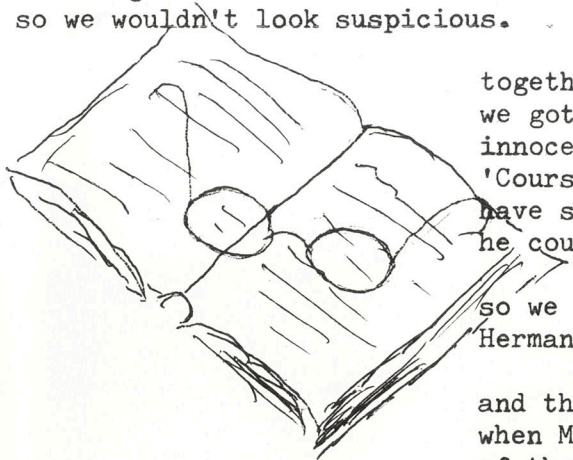 so we wouldn't look suspicious.
togeth
we got
innoce
'Cours
have s
he cou
so we
Herman
and th
when M